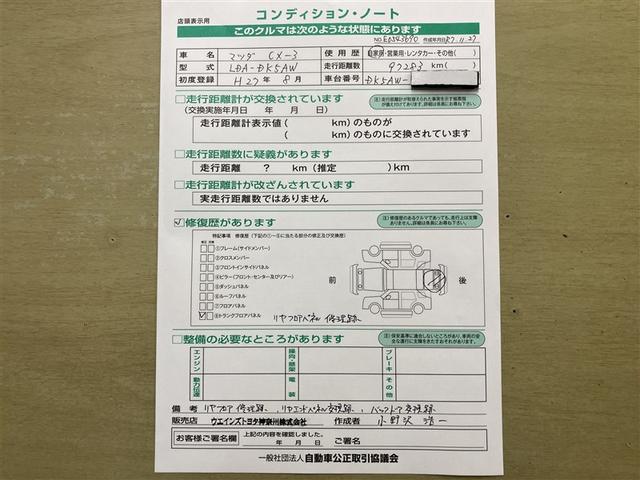 店頭表示用
コンディション・ノート
このクルマは次のような状態にあります
車名 マツダ CX-3 使用歴 自家用・営業用・レンタカー・その他( )
型式 LDA-DK5AW 走行距離数 97283 km( )
初度登録 H27年 8月 車台番号 DK5AW-
走行距離計が交換されています
(交換実施年月日 年 月 日)
走行距離計表示値( km)のものが
( km)のものに交換されています
走行距離数に疑義があります
走行距離 ? km(推定 )km
走行距離計が改ざんされています
実走行距離数ではありません
✓修復歴があります
特記事項 修復歴(下記の①~⑧に当たる部分の修正及び交換歴)
①フレーム(サイドメンバー)
②クロスメンバー
③フロントインサイドパネル
④ピラー(フロント・センター及びリアー)
⑤ダッシュパネル
⑥ルーフパネル
⑦フロアパネル
✓⑧トランクフロアパネル
前 後
リヤフロアパネル 修理跡
整備の必要なところがあります
エンジン 操向・懸架 ブレーキ
動力伝達 電装 その他
備考 リヤフロア修理跡、リヤエンドパネル交換跡、バックドア交換跡
販売店 ウエインズトヨタ神奈川株式会社 作成者
お客様ご署名欄 上記の内容を確認しました。
年 月 日 ご署名
一般社団法人 自動車公正取引協議会